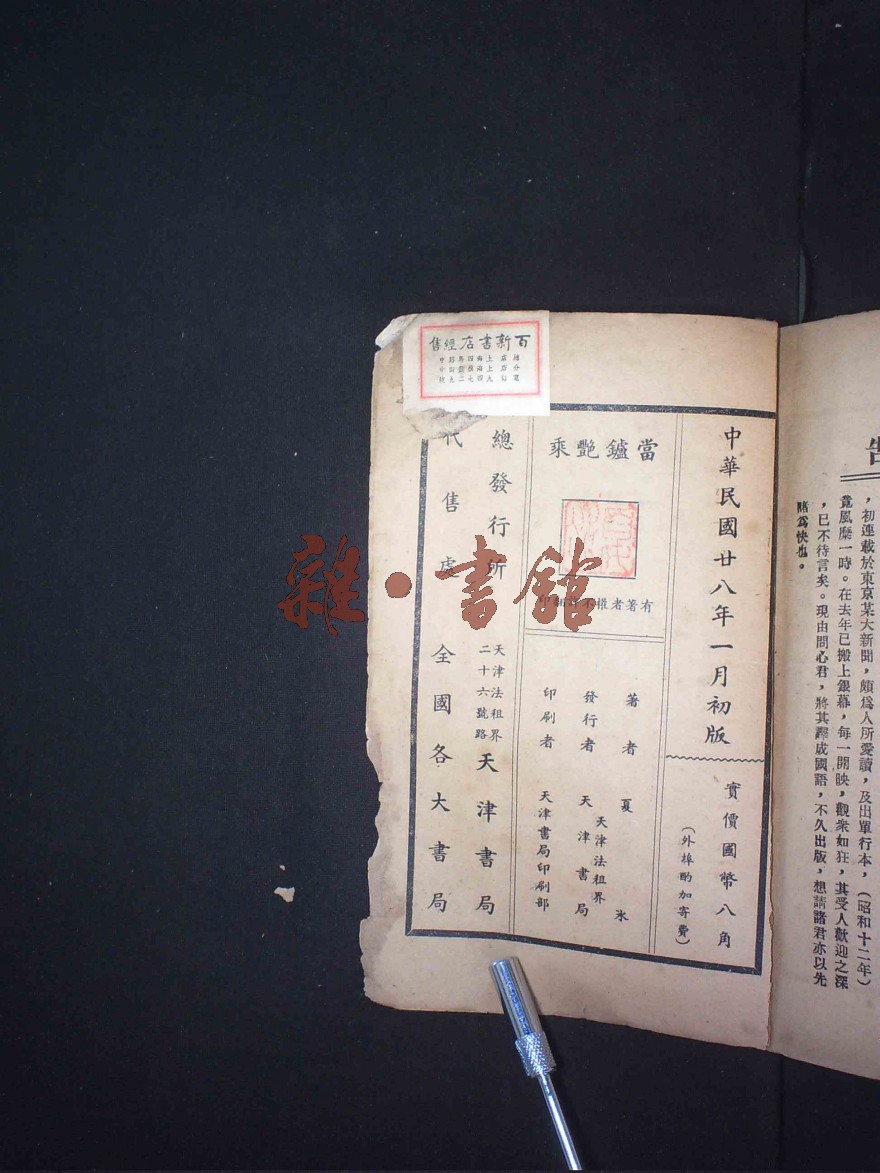 告
，初連載於東京某大新聞，頗爲人所愛讀，及出單行本，（昭和十二年）
竟風靡一時。在去年已搬上銀幕，每一開映，觀衆如狂，其受人歡迎之深
，已不待言矣。現由問心君，將其譯成國語，不久出版，想請諸君亦以先
睹爲快也。
中華民國廿八年一月初版
實價國幣八角
（外埠酌加寄費）
當鑪艷乘
有著者權不
著者 夏氷
發行者 天津書局
天津法租界
印刷者 天津書局印刷部
總發行所
天津法租界
二十六號路
天津書局
代售處 全國各大書局
百新書店經售
雜·書館